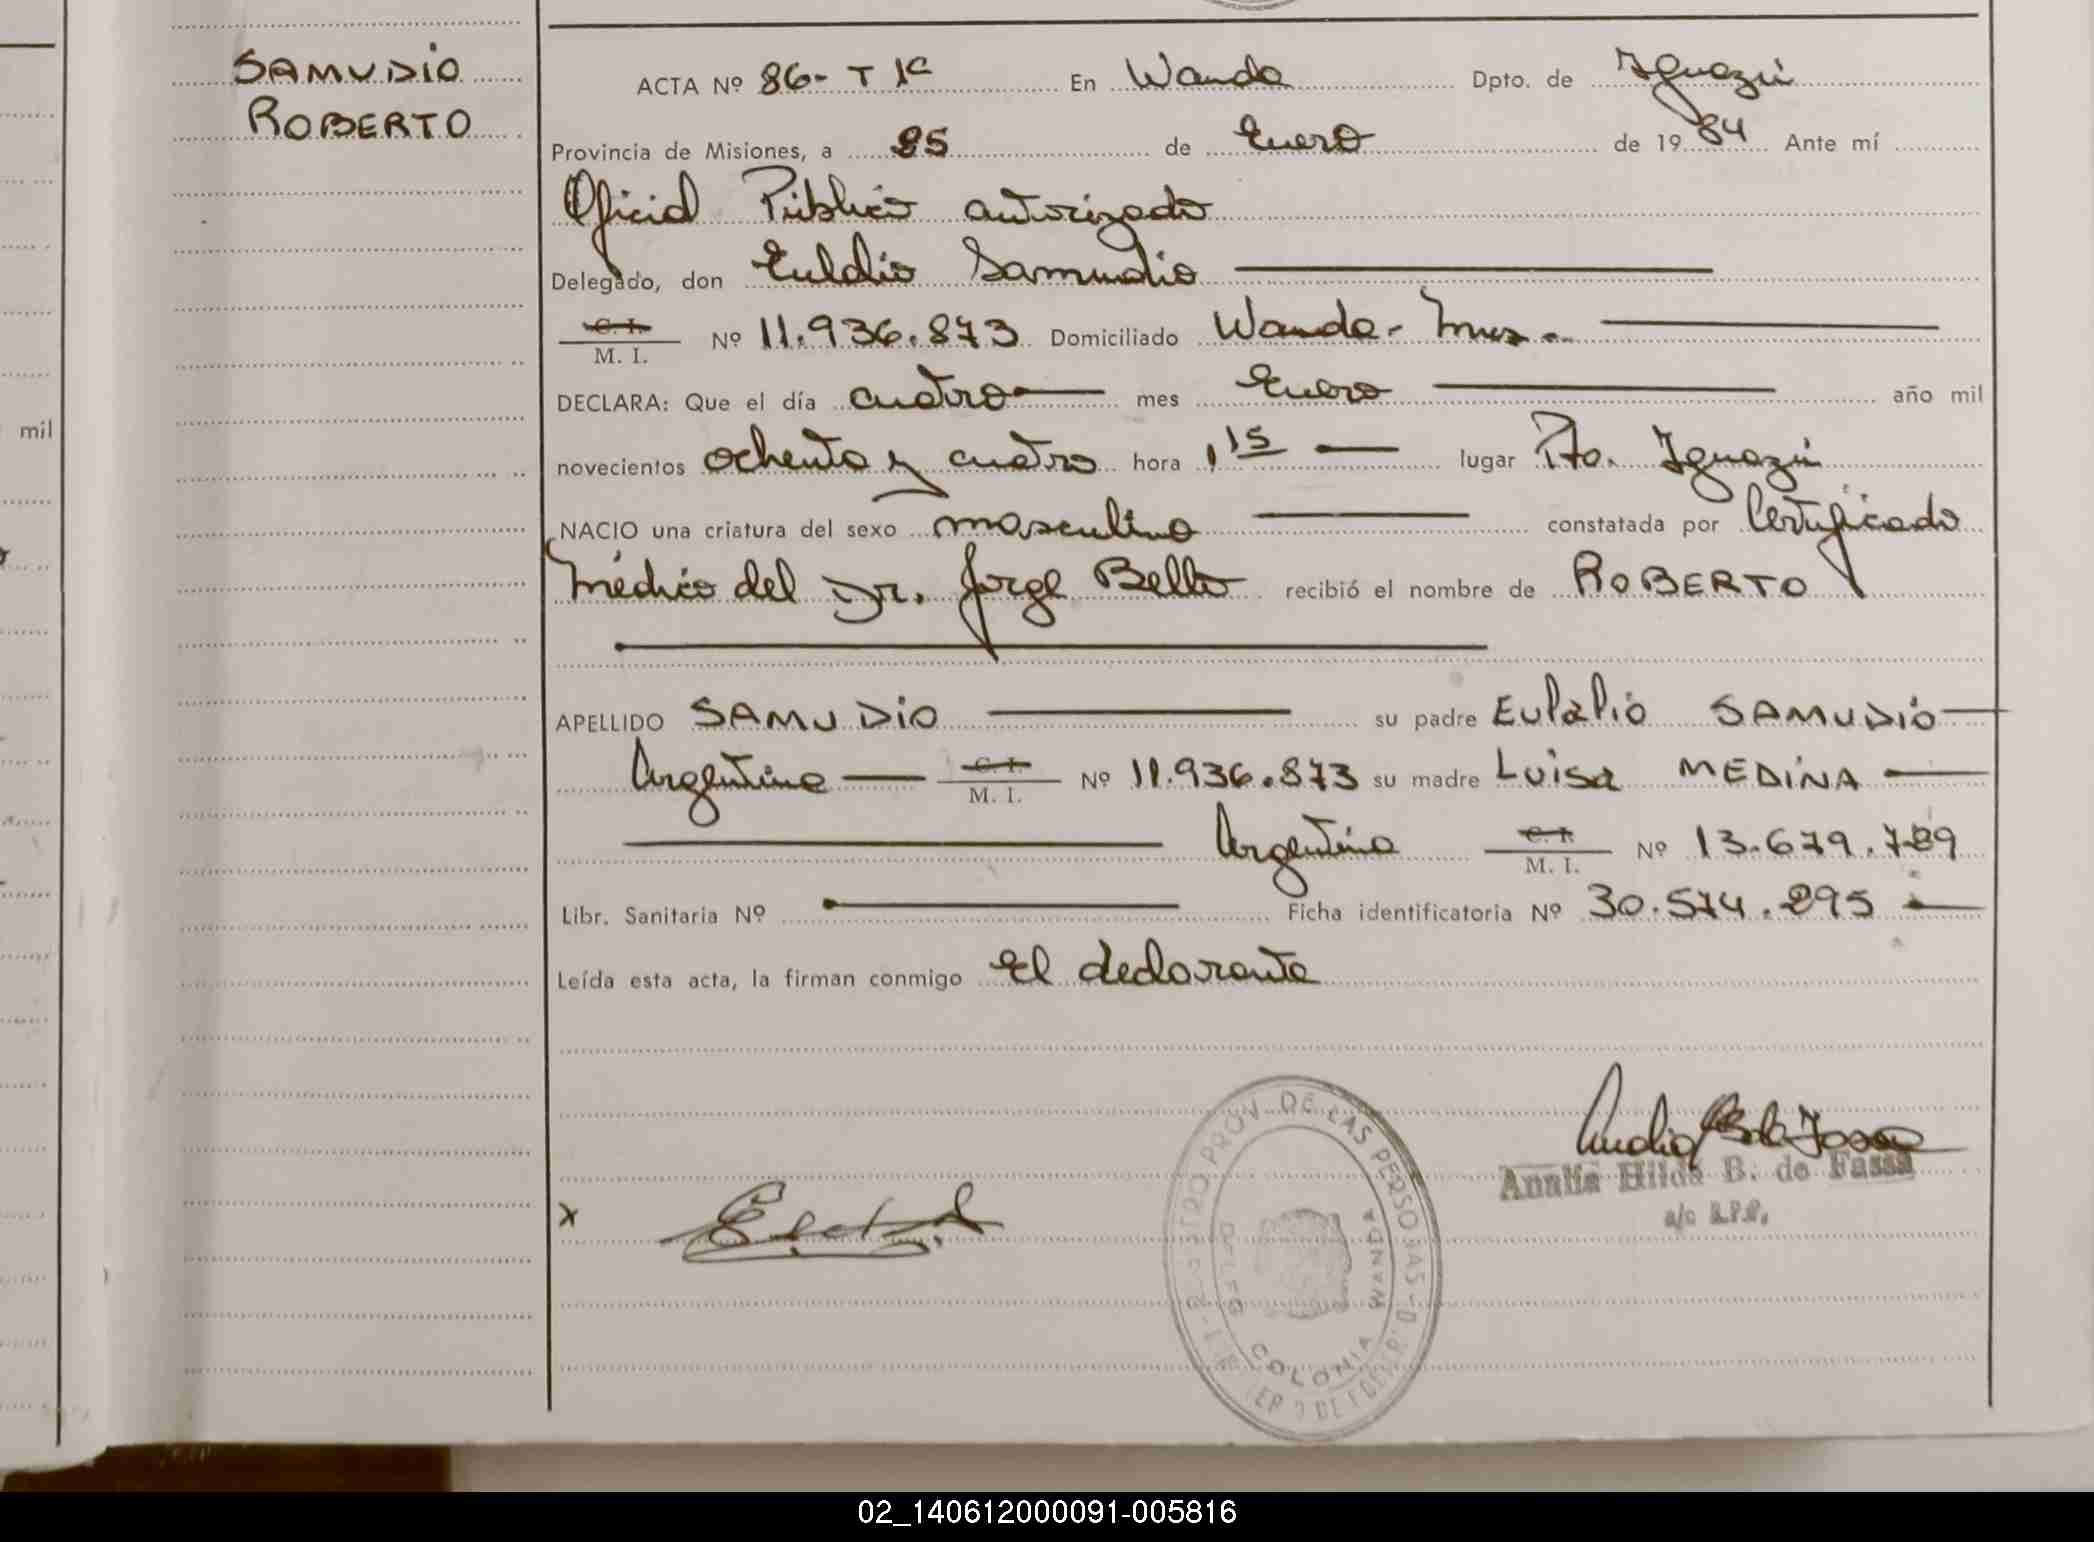 SAMUDIO
ROBERTO
ACTA Nº 86- T 1º En Wanda Dpto. de Iguazú
Provincia de Misiones, a 25 de Enero de 1984 Ante mí
Oficial Público autorizado
Delegado, don Eulalio Samudio
C. I.
M. I. Nº 11.936.873 Domiciliado Wanda- Mnes.-
DECLARA: Que el día cuatro mes Enero año mil
novecientos ochenta y cuatro hora 1,15 lugar Pto. Iguazú
NACIO una criatura del sexo masculino constatada por Certificado
Médico del Dr. Jorge Bello recibió el nombre de ROBERTO
APELLIDO SAMUDIO su padre Eulalio SAMUDIO
Argentino C. I. M. I. Nº 11.936.873 su madre Luisa MEDINA
Argentina C. I. M. I. Nº 13.679.789
Libr. Sanitaria Nº Ficha identificatoria Nº 30.574.295
Leída esta acta, la firman conmigo el declarante
x
Analia Hilda B. de Fassa
a/c R.P.P.
REGISTRO PROV. DE LAS PERSONAS
DELEG. COLONIA WANDA
mil
02_140612000091-005816